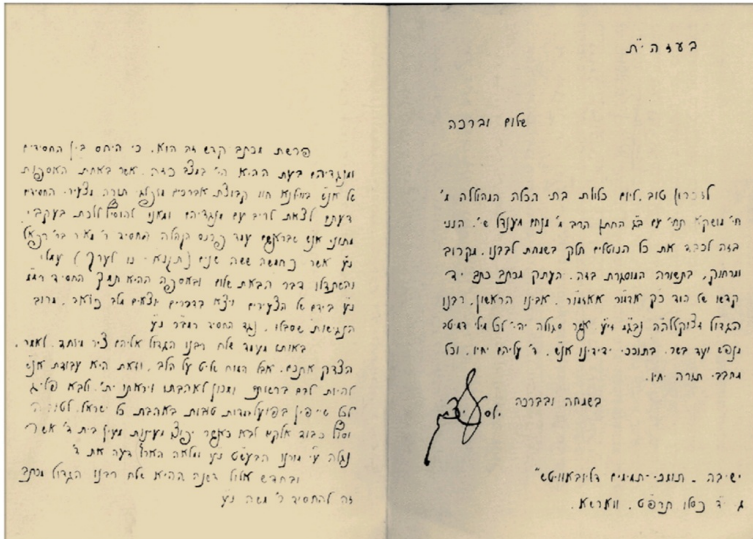 בעזה״ת
שלום וברכה
לזכרון טוב, ליום כלולת בתי הכלה המהוללה מ׳
חי׳ מושקא תחי׳ עם ב״ג החתן הרב מ׳ מנחם מענדל שי׳. הנני
בזה לכבד את כל הנוטלים חלק בשמחת לבבנו, מקרוב
ומרחוק, בתשורה המוסגרת בזה. העתק מכתב כתב יד
קדשו של כבוד כ״ק אדמור אאזמו״ר, אבינו הראשון, רבנו
הגדול זצוקללה״ה נבג״מ זי״ע אשר סגולה יהי׳ לכל מילי דמיטב
מנפש ועד בשר, בתוככי ידידינו אנ״ש, ד׳ עליהם יחיו, וכל
מחבבי תורה יחיו.
בשמחה ובברכה
ישיבה - תומכי-תמימים דליובאוויטש״
ג׳ י״ד כסלו תרפ״ט. ווארשא.
פרשת מכתב קדש זה הוא, כי היחס בין החסידים
ומנגדיהם בעת ההיא הי׳ במצב כזה, אשר באחת האספות
של אנ״ש בווילנא חוו קבוצת אברכים מופלגי תורה מצעירי החסידים
דעתם לצאת לריב עם מנגדיהם ומאנו להוסיף ללכת בעקבי
מתוני אנ״ש שבראשם עמד פרנס הקהלה החסיד ר׳ מאיר בר׳ רפאל
נ״ע אשר כחמשה ששה שנים
והשתדלו דבר הבאת שלום ובאספה ההיא תמך החסיד
נ״ע בידם של הצעירים ויצא בדברים יוצאים מלב כואב, מרוב
הנגישות שסבלו, נגד החסיד רמב״ר נ״ע
באותו מעמד שלח רבנו הגדול אליהם ציר מיוחד, לאמר,
הצדק אתכם, אבל המוח שליט על הלב, וזאת היא עבודת אנ״ש
להיות לבם ברשותם ומכון לאהבתו ויראתו ית׳, ולבא פליג
לכל שייפין בפועל מדות טובות באהבת כל ישראל,
וסוף כבוד אלקים לבא כאשר יפוצו מעינות מעין בית ד׳ אשר
נגלה ע״י מורנו הבעש״ט נ״ע ומלאה הארץ דעה את ד׳
ובחדש אלול דשנה ההיא שלח רבנו הגדול מכתב
זה להחסיד ר׳ משה נ״ע